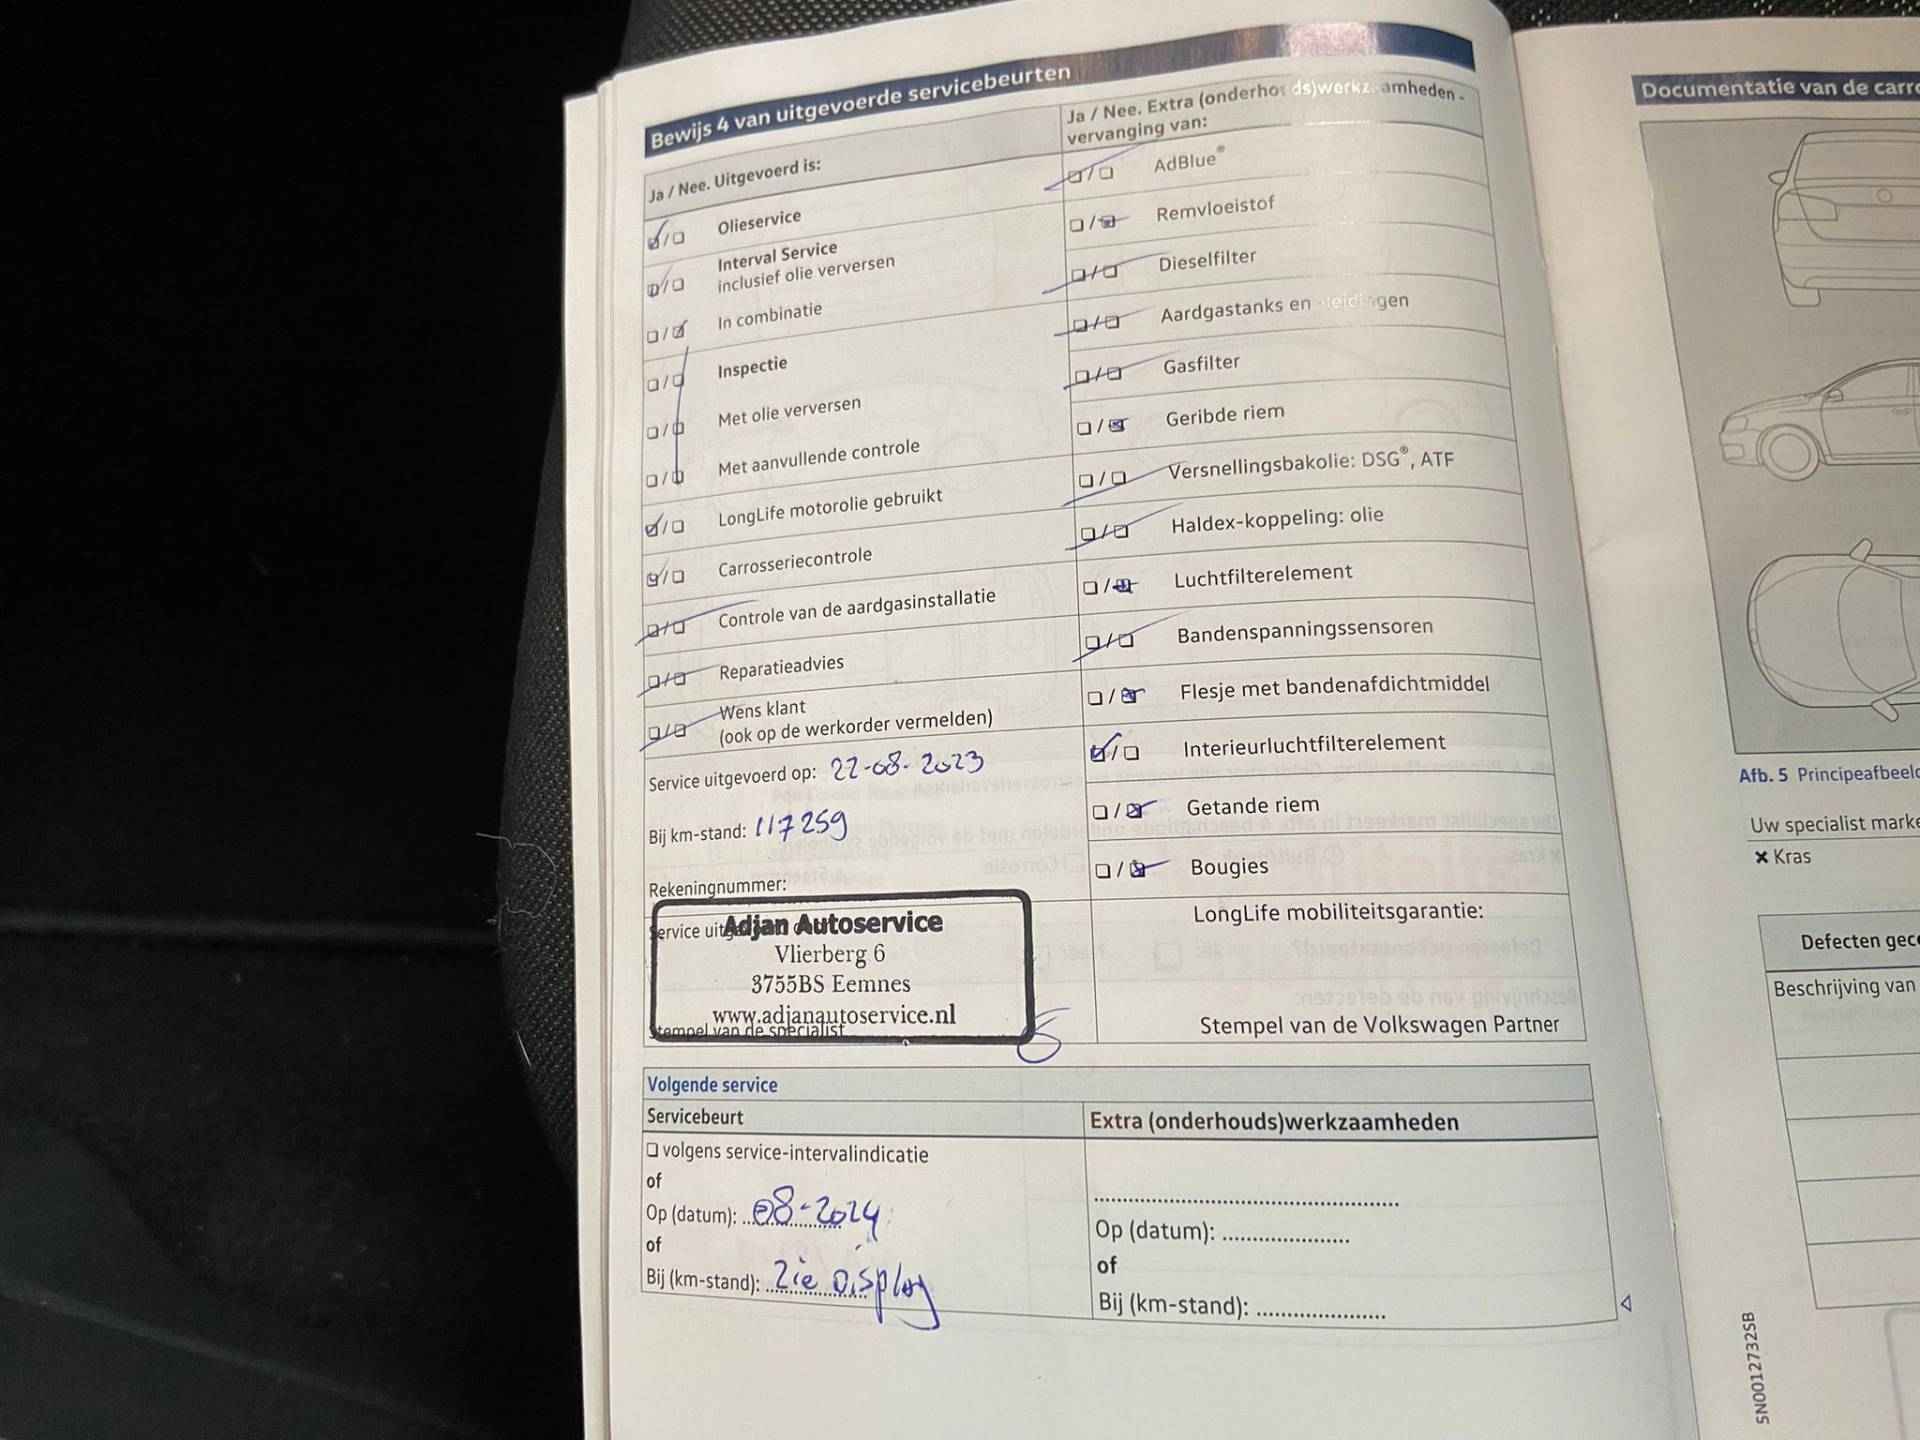 Bewijs 4 van uitgevoerde servicebeurten
Ja / Nee. Uitgevoerd is:
Olieservice
Interval Service
inclusief olie verversen
In combinatie
Inspectie
Met olie verversen
Met aanvullende controle
LongLife motorolie gebruikt
Carrosseriecontrole
Controle van de aardgasinstallatie
Reparatieadvies
Wens klant
(ook op de werkorder vermelden)
Service uitgevoerd op: 22-08-2023
Bij km-stand: 117259
Rekeningnummer:
Service
Adjan Autoservice
Vlierberg 6
3755BS Eemnes
www.adjanautoservice.nl
Stempel van de specialist
Ja / Nee. Extra (onderhouds)werkzaamheden -
vervanging van:
AdBlue®
Remvloeistof
Dieselfilter
Aardgastanks en -leidingen
Gasfilter
Geribde riem
Versnellingsbakolie: DSG®, ATF
Haldex-koppeling: olie
Luchtfilterelement
Bandenspanningssensoren
Flesje met bandenafdichtmiddel
Interieurluchtfilterelement
Getande riem
Bougies
LongLife mobiliteitsgarantie:
Stempel van de Volkswagen Partner
Volgende service
Servicebeurt
volgens service-intervalindicatie
of
Op (datum): 08-2024
of
Bij (km-stand): Zie Display
Extra (onderhouds)werkzaamheden
Op (datum):
of
Bij (km-stand):
Documentatie van de
Afb. 5
Uw specialist
× Kras
Defecten
Beschrijving van
5N0012732SB